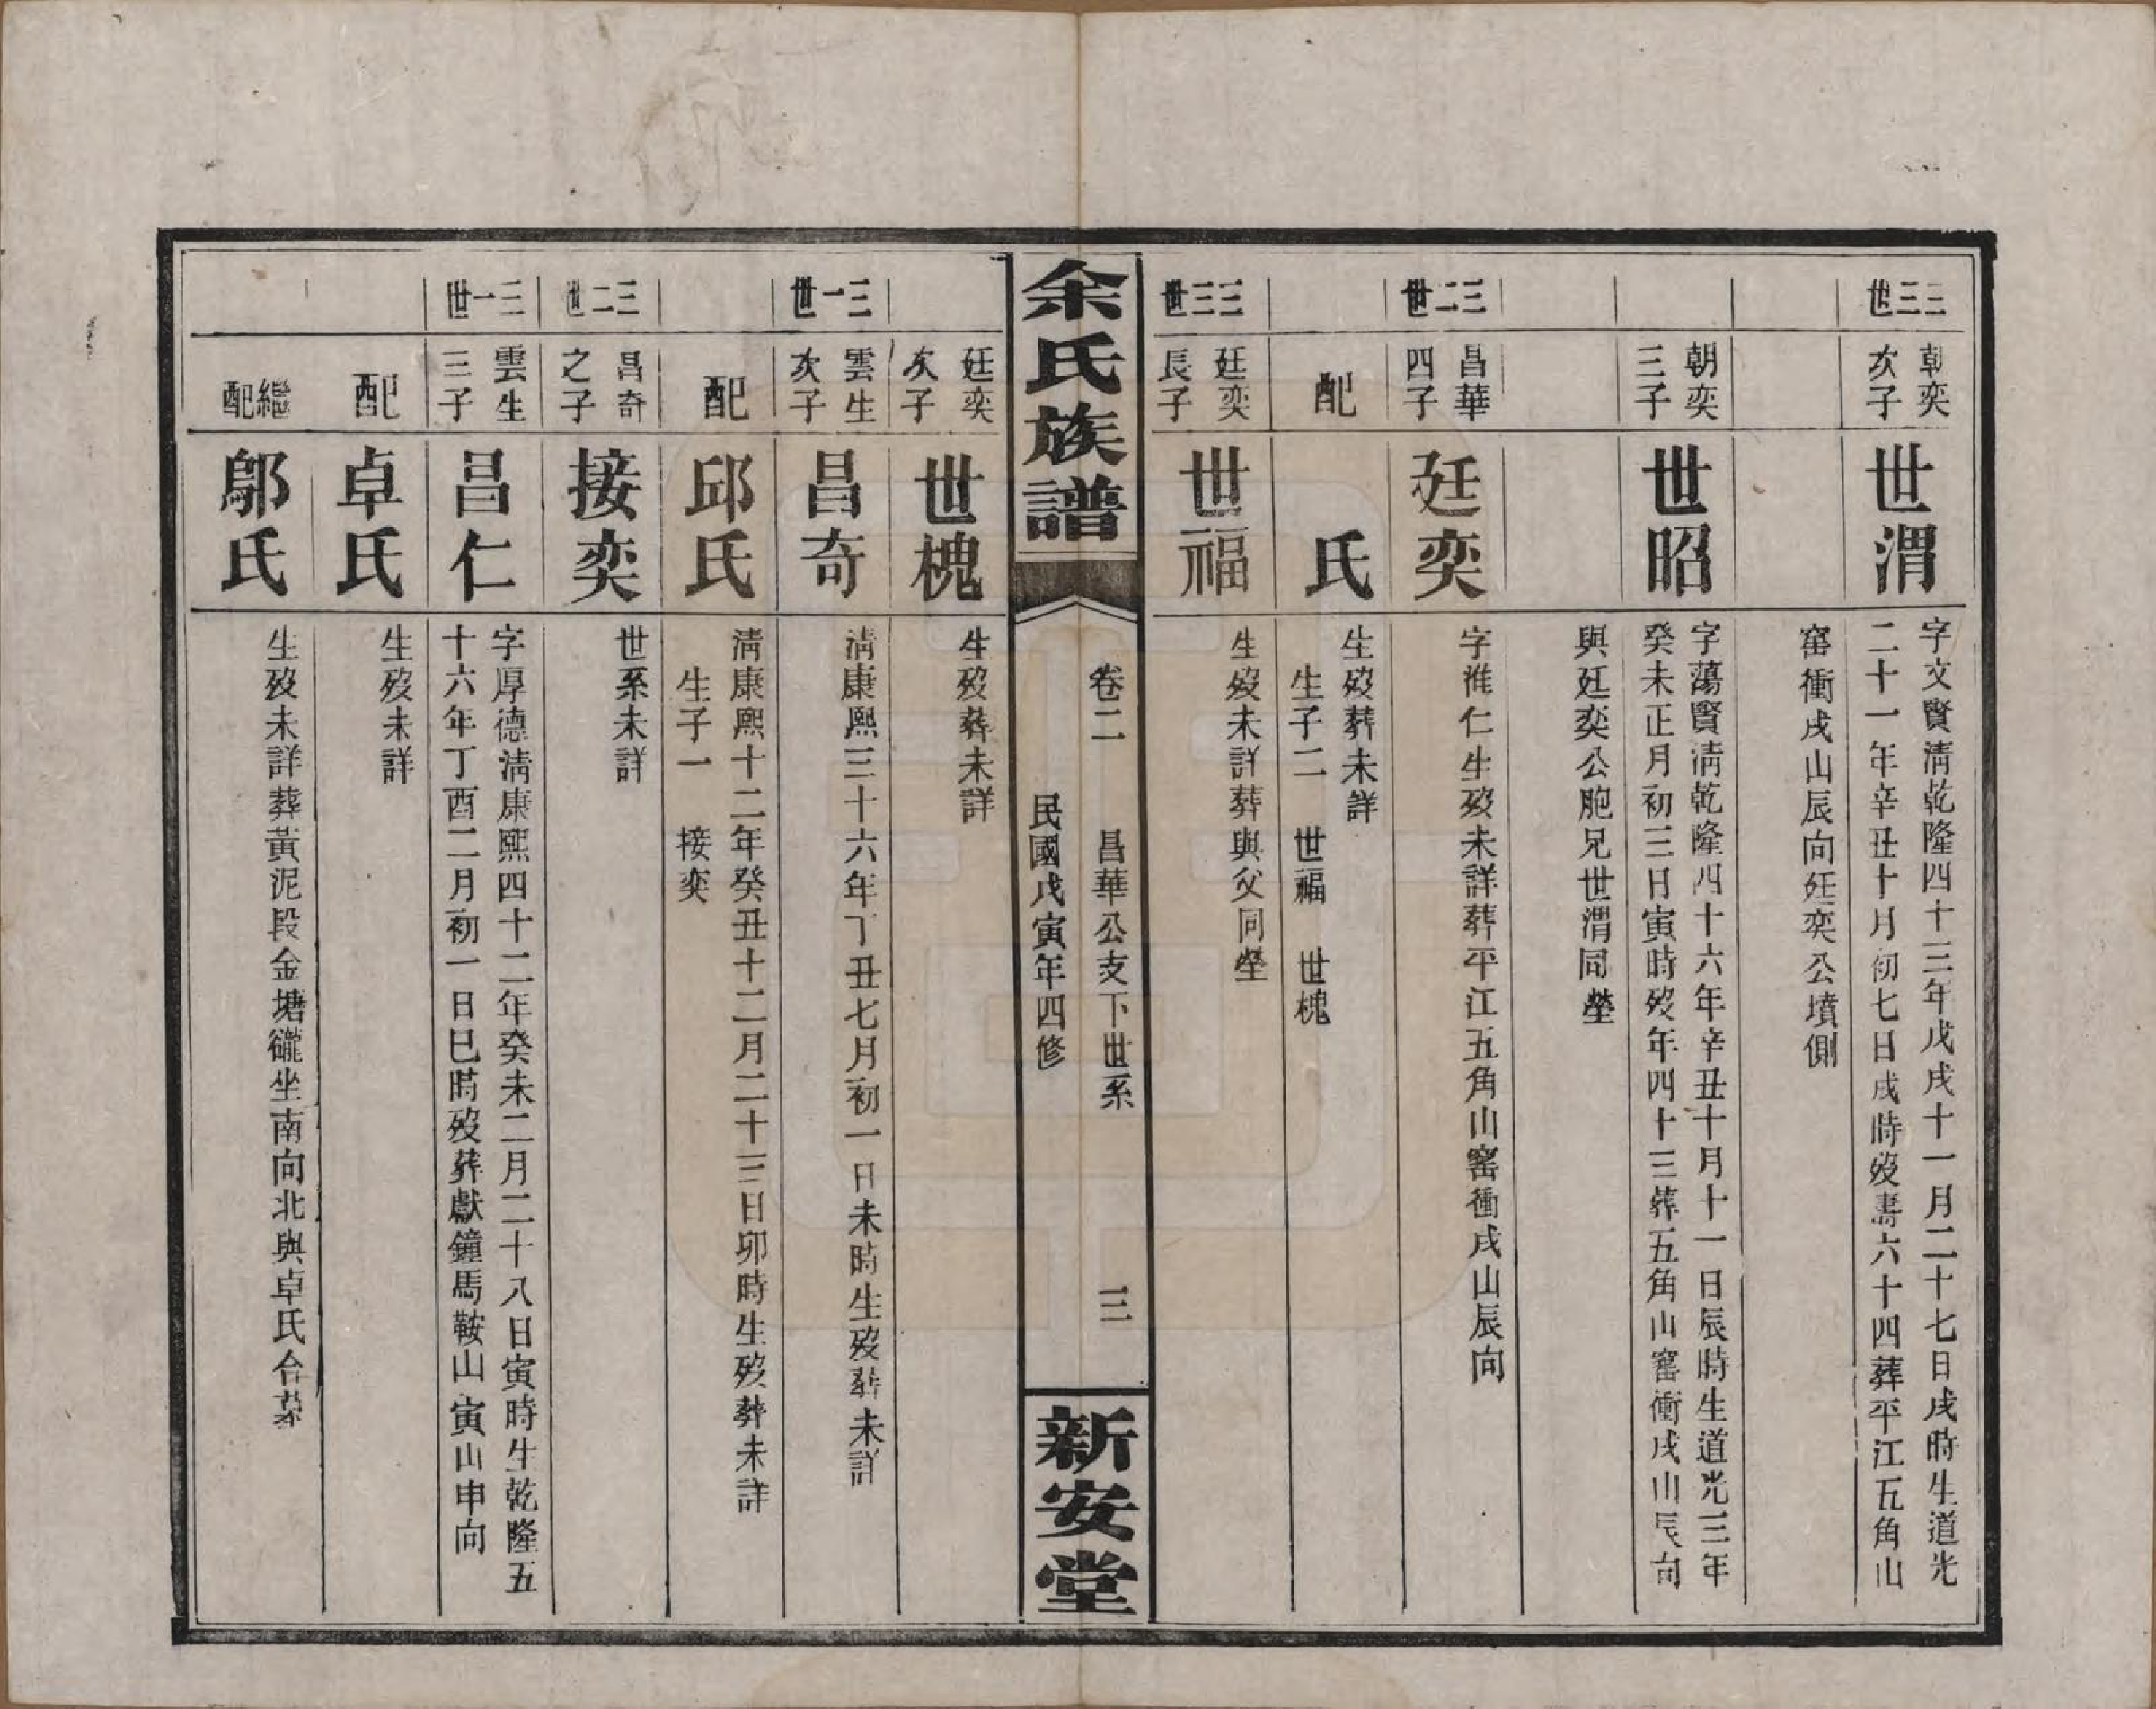 三三世
朝奕
次子
世渭
字文賢淸乾隆四十三年戊戌十一月二十七日戌時生道光
二十一年辛丑十月初七日戌時歿壽六十四葬平江五角山
窰衝戌山辰向廷奕公墳側
朝奕
三子
世昭
字蕩賢淸乾隆四十六年辛丑十月十一日辰時生道光三年
癸未正月初三日寅時歿年四十三葬五角山窰衝戌山辰向
與廷奕公胞兄世渭同塋
三二世
昌華
四子
廷奕
字惟仁生歿未詳葬平江五角山窰衝戌山辰向
配
氏
生歿葬未詳
生子二 世福 世槐
三三世
廷奕
長子
世福
生歿未詳葬與父同塋
余氏族譜
卷二 昌華公支下世系 三
民國戊寅年四修
新安堂
廷奕
次子
世槐
生歿葬未詳
三一世
雲生
次子
昌奇
淸康熙三十六年丁丑七月初一日未時生歿葬未詳
配
邱氏
淸康熙十二年癸丑十二月二十三日卯時生歿葬未詳
生子一 接奕
三二世
昌奇
之子
接奕
世系未詳
三一世
雲生
三子
昌仁
字厚德淸康熙四十二年癸未二月二十八日寅時生乾隆五
十六年丁酉二月初一日巳時歿葬獻鐘馬鞍山寅山申向
配
卓氏
生歿未詳
繼配
鄔氏
生歿未詳葬黃泥段金塘𥗽坐南向北與卓氏合墓